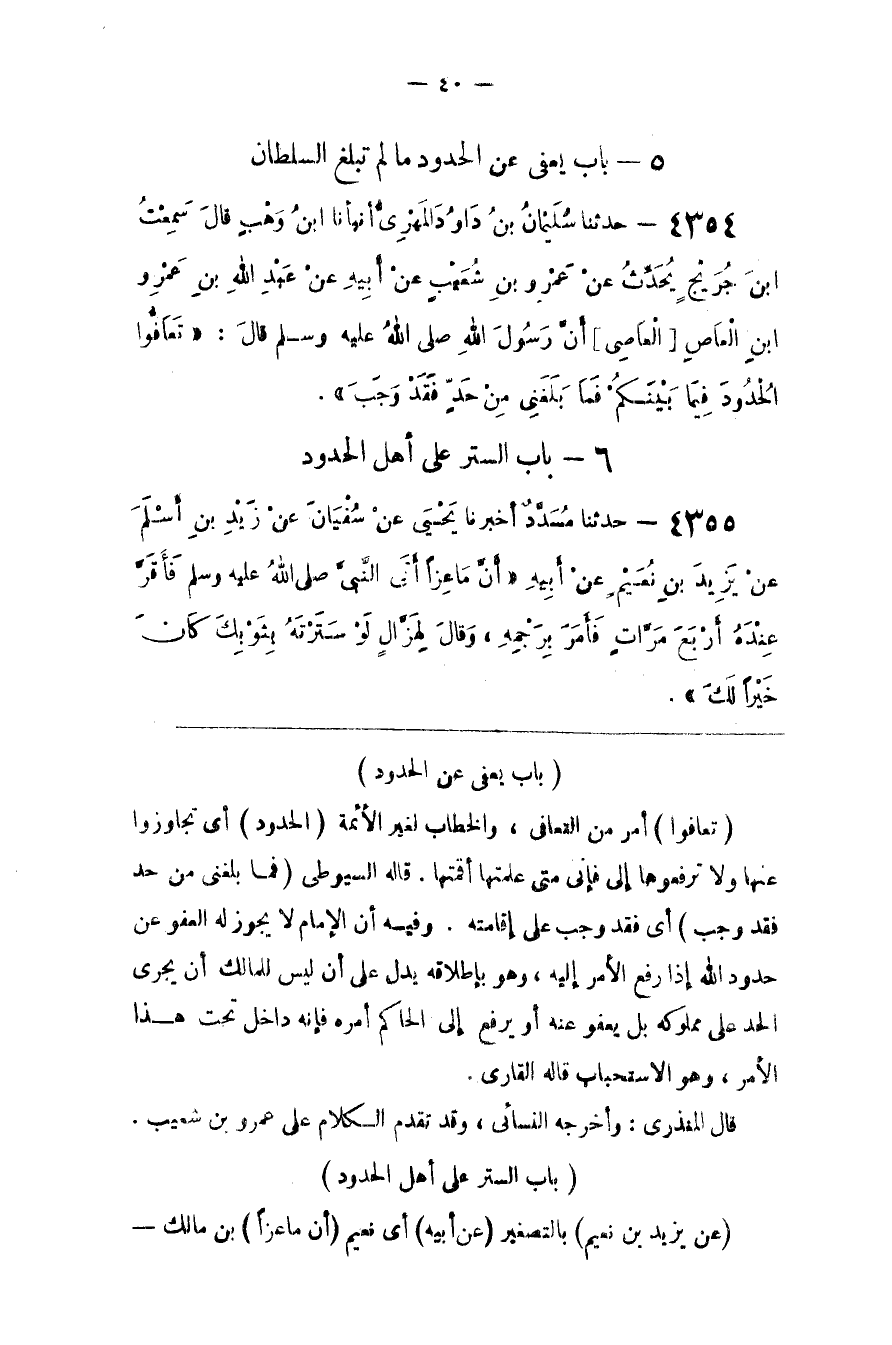 — ٤٠ —
٥ — باب يعفى عن الحدود ما لم تبلغ السلطان
٤٣٥٤ — حدثنا سُلَيْمَانُ بنُ دَاوُدَ المَهْرِىُّ أنبأنا ابنُ وَهْبٍ قالَ سَمِعْتُ
ابنَ جُرَيْجٍ يُحَدِّثُ عنْ عَمْرِو بنِ شُعَيْبٍ عنْ أَبِيهِ عنْ عَبْدِ اللهِ بنِ عَمْرِو
ابنِ الْعَاصِ [ الْعَاصِى ] أَنَّ رَسُولَ اللهِ صلى اللهُ عليه وسلم قالَ : « تَعَافُّوا
الْحُدُودَ فِيمَا بَيْنَكُمْ فَمَا بَلَغَنِى مِنْ حَدٍّ فَقَدْ وَجَبَ » .
٦ — باب الستر على أهل الحدود
٤٣٥٥ — حدثنا مُسَدَّدٌ أخبرنا يَحْيَى عنْ سُفْيَانَ عنْ زَيْدِ بنِ أَسْلَمَ
عنْ يَزِيدَ بنِ نُعَيْمٍ عنْ أَبِيهِ « أَنَّ مَاعِزاً أَتَى النَّبىَّ صلى اللهُ عليه وسلم فَأَقَرَّ
عِنْدَهُ أَرْبَعَ مَرَّاتٍ فَأَمَرَ بِرَجْمِهِ ، وَقالَ لِهَزَّالٍ لَوْ سَتَرْتَهُ بِثَوْبِكَ كَانَ
خَيْراً لَكَ » .
( باب يعفى عن الحدود )
( تعافوا ) أمر من التعافى ، والخطاب لغير الأئمة ( الحدود ) أى تجاوزوا
عنها ولا ترفعوها إلى فإنى متى علمتها أقمتها . قاله السيوطى ( فما بلغنى من حد
فقد وجب ) أى فقد وجب على إقامته . وفيه أن الإمام لا يجوز له العفو عن
حدود الله إذا رفع الأمر إليه ، وهو بإطلاقه يدل على أن ليس للمالك أن يجرى
الحد على مملوكه بل يعفو عنه أو يرفع إلى الحاكم أمره فإنه داخل تحت هذا
الأمر ، وهو الاستحباب قاله القارى .
قال المنذرى : وأخرجه النسائى ، وقد تقدم الكلام على عمرو بن شعيب .
( باب الستر على أهل الحدود )
(عن يزيد بن نعيم) بالتصغير (عن أبيه) أى نعيم (أن ماعزاً) بن مالك —